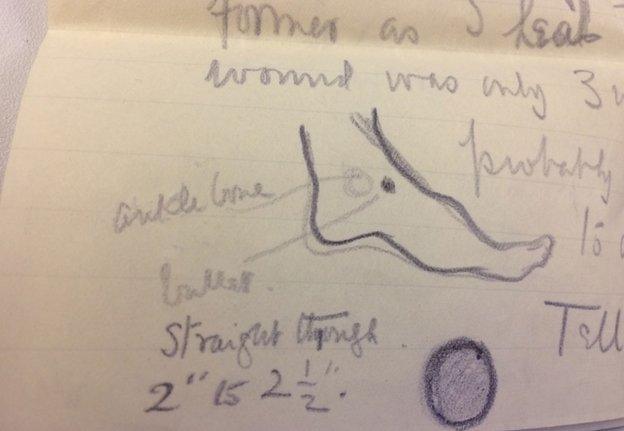 former as I hear
wound was only 3
probably
ankle bone
15
bullet.
Straight through.
Tell
2" to 2 1/2".